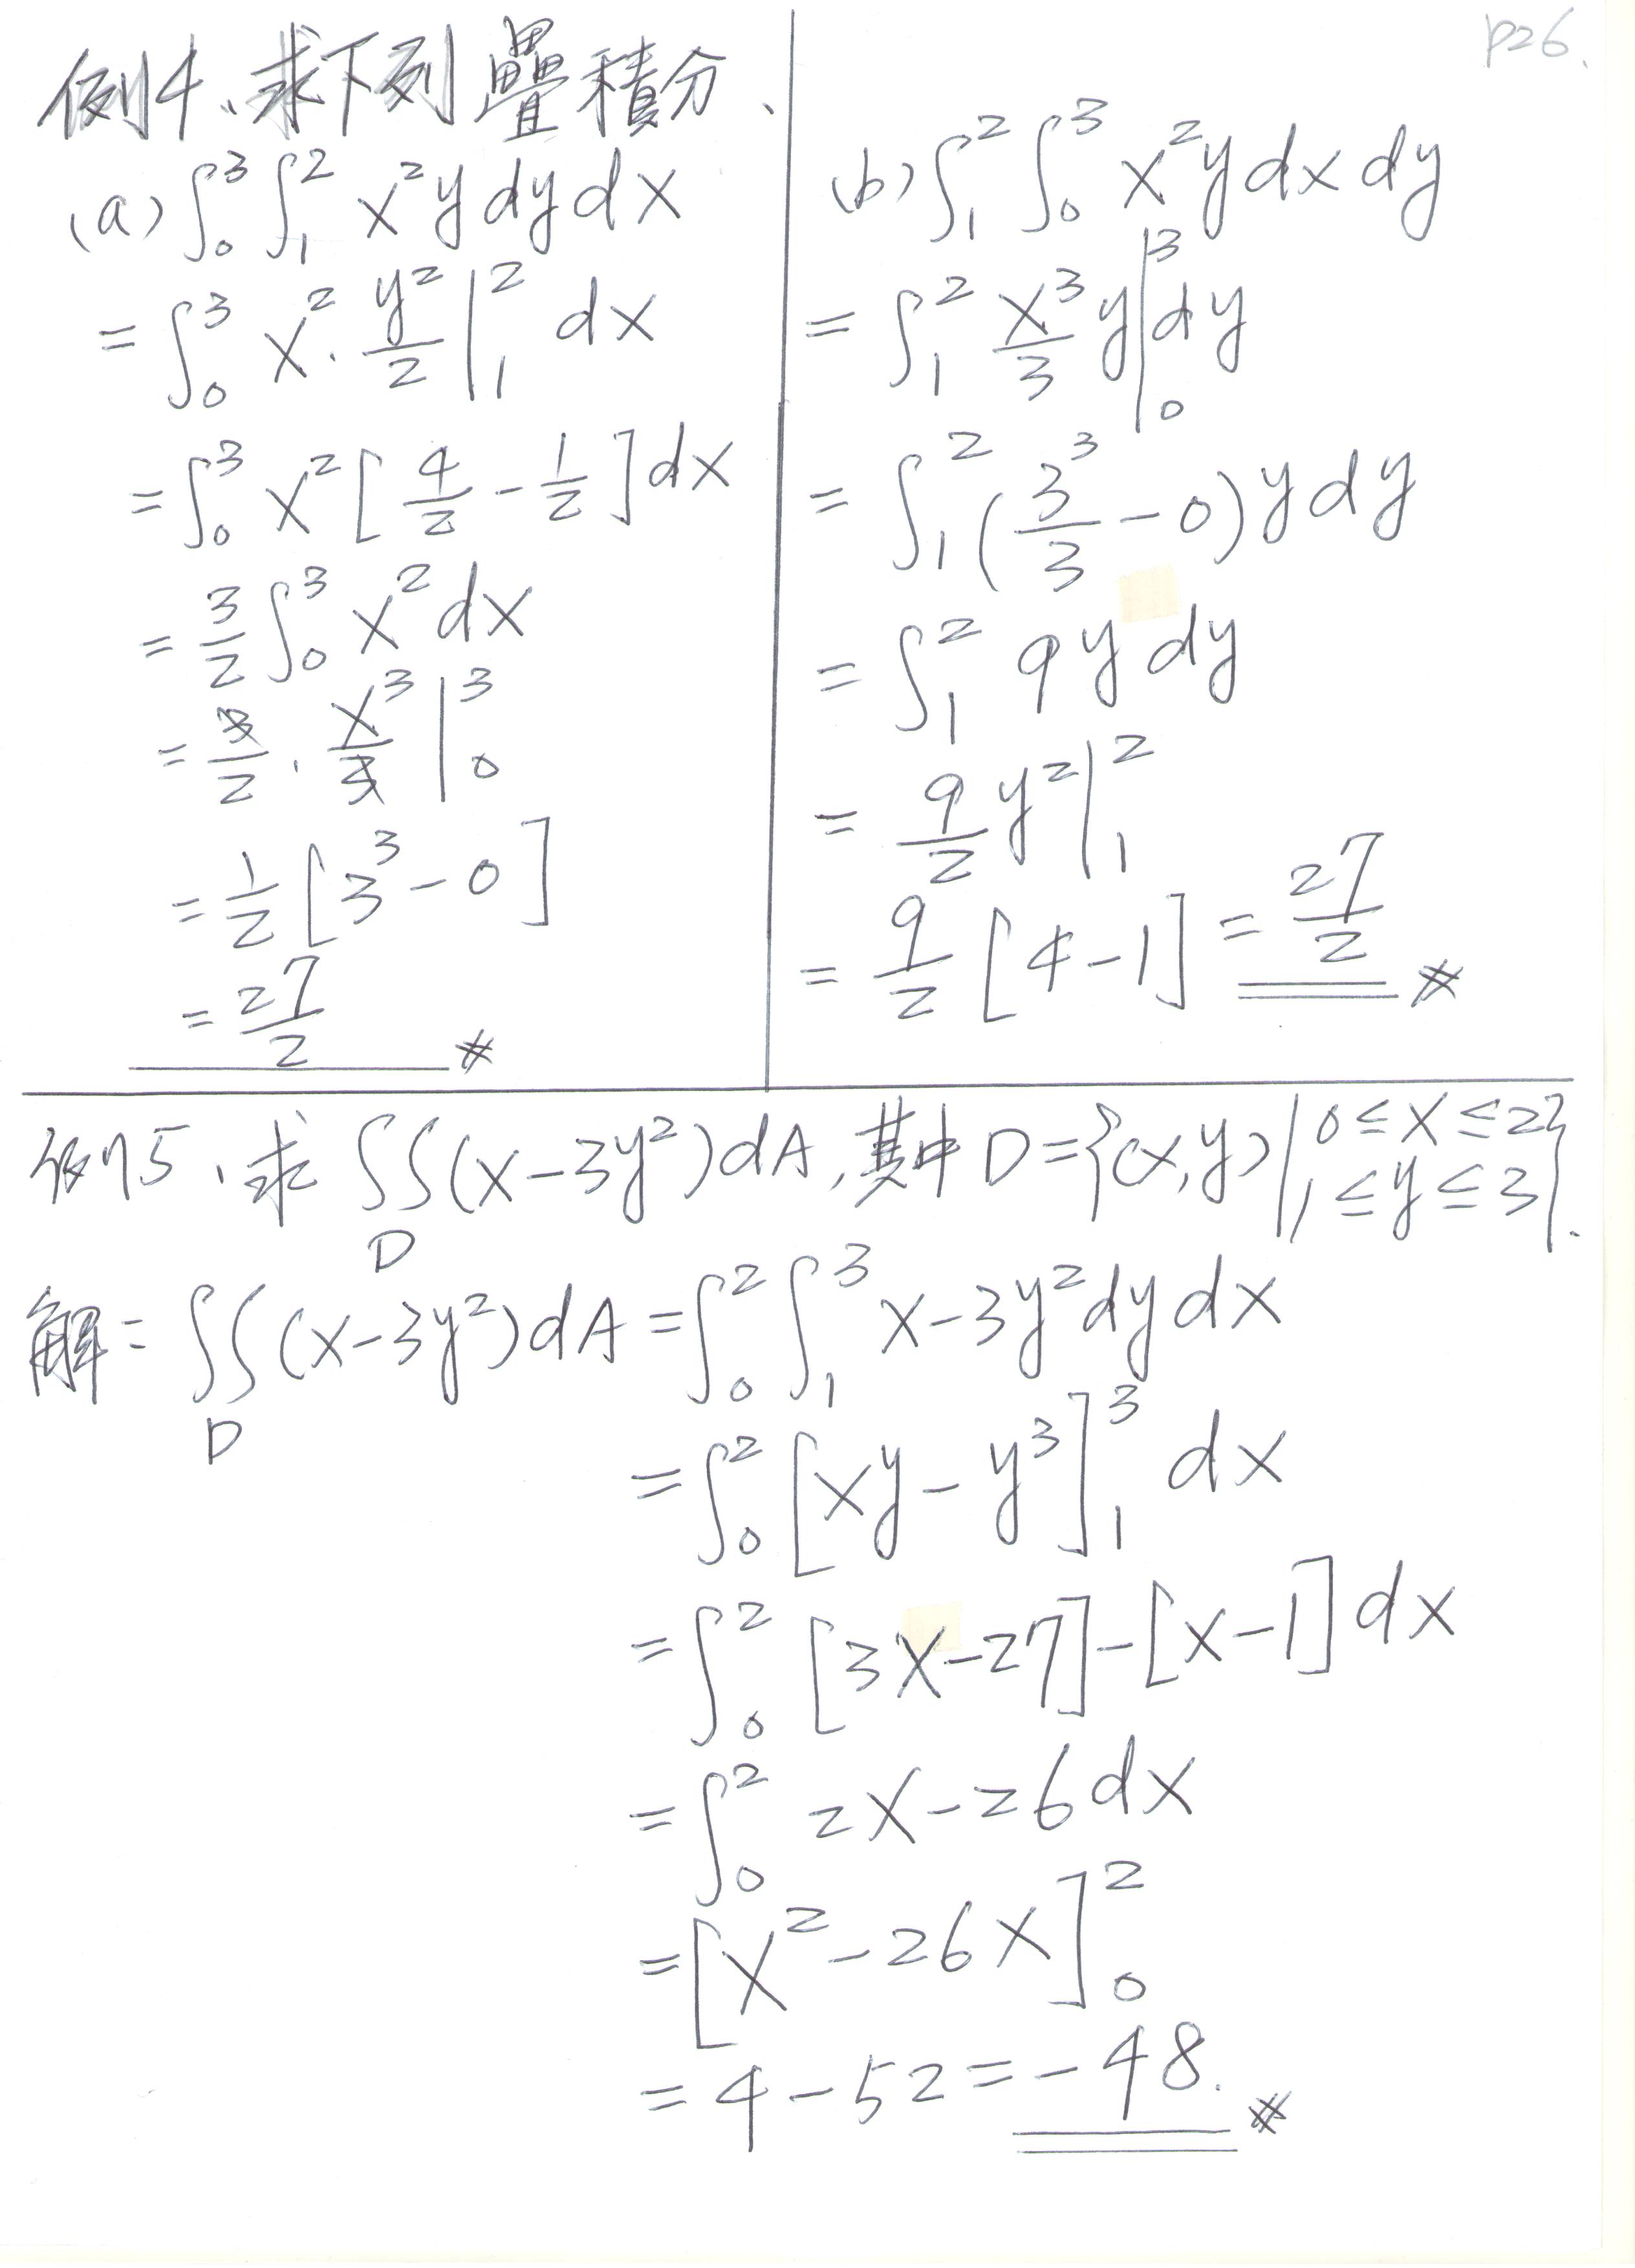 p26.
例4、求下列疊積分、
(a) ∫₀³ ∫₁² x²y dy dx
= ∫₀³ x² · y²/2 |₁² dx
= ∫₀³ x² [4/2 - 1/2] dx
= 3/2 ∫₀³ x² dx
= 3/2 · x³/3 |₀³
= 1/2 [3³ - 0]
= 27/2 #
(b) ∫₁² ∫₀³ x²y dx dy
= ∫₁² x³/3 y |₀³ dy
= ∫₁² (3³/3 - 0) y dy
= ∫₁² 9y dy
= 9/2 y² |₁²
= 9/2 [4-1] = 27/2 #
例5、求 ∬_D (x-3y²)dA, 其中 D={(x,y)| 0≤x≤2, 1≤y≤3}.
解: ∬_D (x-3y²)dA = ∫₀² ∫₁³ x-3y² dy dx
= ∫₀² [xy - y³]₁³ dx
= ∫₀² [3x-27]-[x-1] dx
= ∫₀² 2x-26 dx
= [x²-26x]₀²
= 4-52 = -48. #